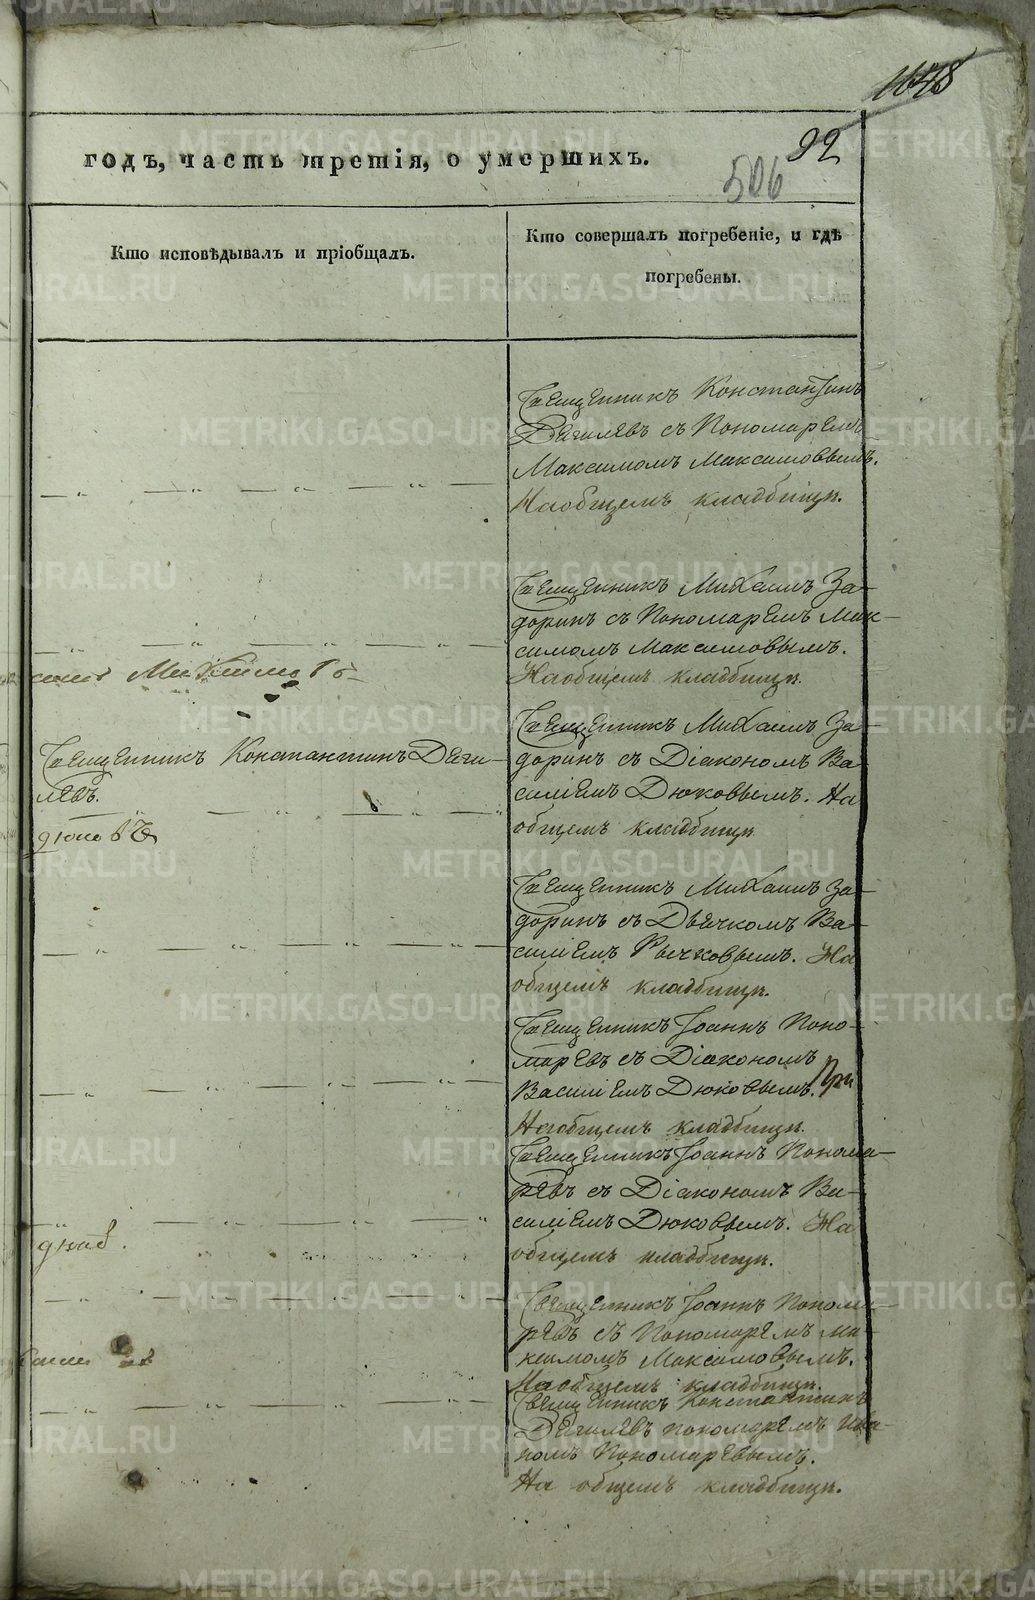 1648
92
506
годъ, часть третія, о умершихъ.
Кто исповѣдывалъ и пріобщалъ.
Кто совершалъ погребеніе, и гдѣ
погребены.
Священникъ Константинъ
Дягилевъ съ Пономаремъ
Максимомъ Максимовымъ.
На общемъ кладбищѣ.
Священникъ Михаилъ За-
доринъ съ Пономаремъ Мак-
симомъ Максимовымъ.
На общемъ кладбищѣ.
Священникъ Константинъ Дяги-
левъ.
Священникъ Михаилъ За-
доринъ съ Діакономъ Ва-
силіемъ Дюковымъ. На
общемъ кладбищѣ
Священникъ Михаилъ За-
доринъ съ Дьячкомъ Ва-
силіемъ Рычковымъ. На
общемъ кладбищѣ.
Священникъ Іоаннъ Поно-
маревъ съ Діакономъ
Василіемъ Дюковымъ.
На общемъ кладбищѣ.
Священникъ Іоаннъ Понома-
ревъ съ Діакономъ Ва-
силіемъ Дюковымъ. На
общемъ кладбищѣ.
Священникъ Іоаннъ Понома-
ревъ съ Пономаремъ Ма-
ксимомъ Максимовымъ.
На общемъ кладбищѣ.
Священникъ Константинъ
Дягилевъ пономаремъ Ива-
номъ Пономаревымъ.
На общемъ кладбищѣ.
METRIKI.GASO-URAL.RU